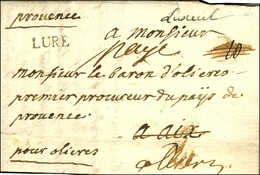 provence
Luxeuil
LURE
a monsieur
10
monsieur le baron d'olieres
premier procureur du païs de
provence
a aix
pour olieres